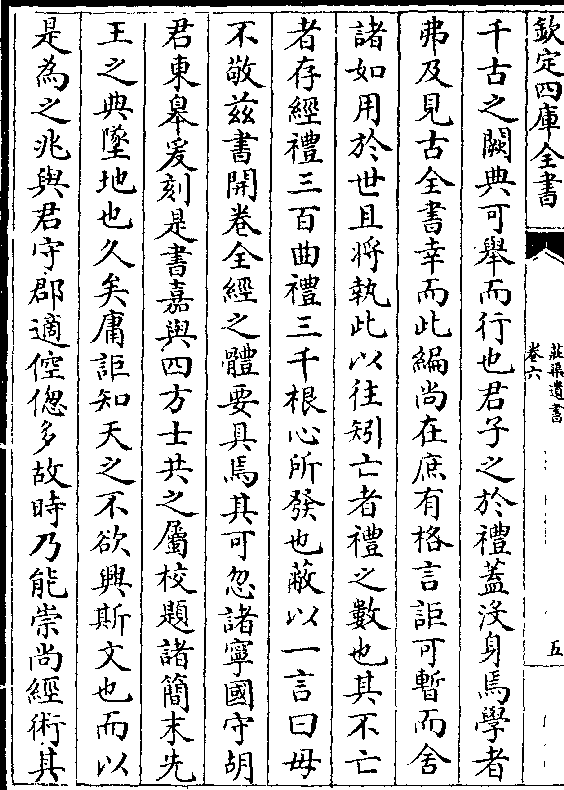 欽定四庫全書
莊渠遺書
卷六
五
千古之闕典可舉而行也君子之於禮蓋沒身焉學者
弗及見古全書幸而此編尚在庶有格言詎可暫而舍
諸如用於世且將執此以往矧亡者禮之數也其不亡
者存經禮三百曲禮三千根心所發也蔽以一言曰毋
不敬茲書開卷全經之體要具焉其可忽諸寧國守胡
君東皐爰刻是書嘉與四方士共之屬校題諸簡末先
王之典墜地也久矣庸詎知天之不欲興斯文也而以
是為之兆與君守郡適倥偬多故時乃能崇尚經術其